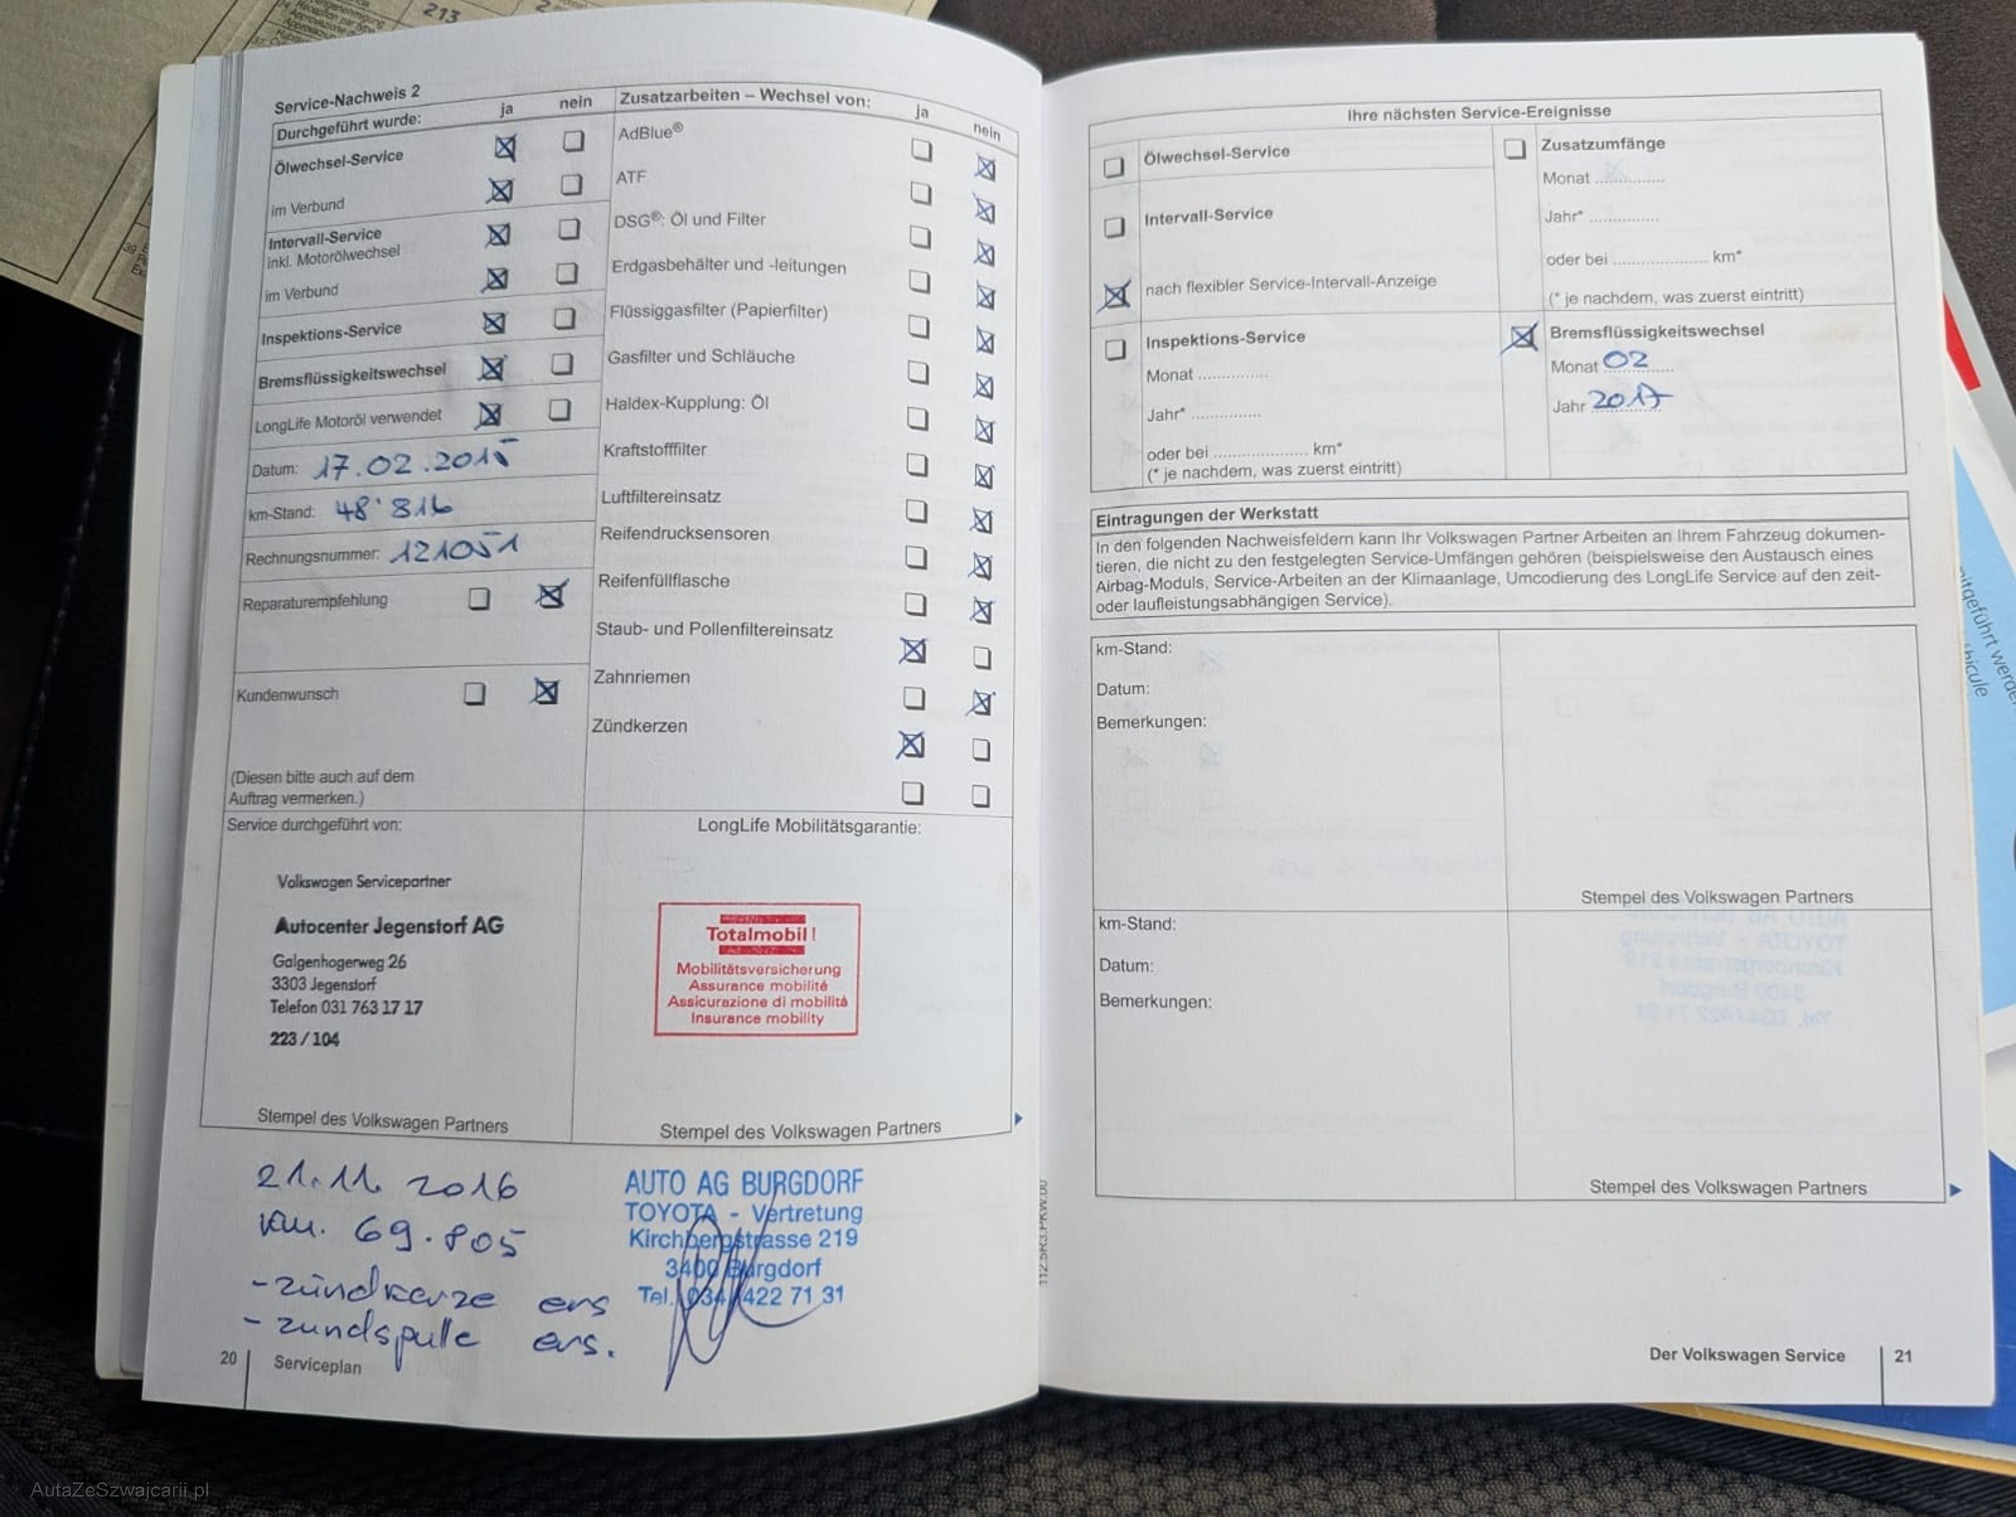 213
2
Service-Nachweis 2
Durchgeführt wurde: ja nein
Ölwechsel-Service
im Verbund
Intervall-Service
inkl. Motorölwechsel
im Verbund
Inspektions-Service
Bremsflüssigkeitswechsel
LongLife Motoröl verwendet
Datum: 17.02.2015
km-Stand: 48'816
Rechnungsnummer: 121051
Reparaturempfehlung
Kundenwunsch
(Diesen bitte auch auf dem
Auftrag vermerken.)
Zusatzarbeiten – Wechsel von: ja nein
AdBlue®
ATF
DSG®: Öl und Filter
Erdgasbehälter und -leitungen
Flüssiggasfilter (Papierfilter)
Gasfilter und Schläuche
Haldex-Kupplung: Öl
Kraftstofffilter
Luftfiltereinsatz
Reifendrucksensoren
Reifenfüllflasche
Staub- und Pollenfiltereinsatz
Zahnriemen
Zündkerzen
Service durchgeführt von:
Volkswagen Servicepartner
Autocenter Jegenstorf AG
Galgenhogerweg 26
3303 Jegenstorf
Telefon 031 763 17 17
223 / 104
Stempel des Volkswagen Partners
LongLife Mobilitätsgarantie:
Totalmobil!
Mobilitätsversicherung
Assurance mobilité
Assicurazione di mobilità
Insurance mobility
Stempel des Volkswagen Partners
21.11.2016
km. 69.805
-zündkerze ers
-zundspulle ers.
AUTO AG BURGDORF
TOYOTA - Vertretung
Kirchbergstrasse 219
3400 Burgdorf
Tel. 034/422 71 31
20 Serviceplan
Ihre nächsten Service-Ereignisse
Ölwechsel-Service
Intervall-Service
nach flexibler Service-Intervall-Anzeige
Inspektions-Service
Monat ..............
Jahr* ..............
oder bei ................... km*
(* je nachdem, was zuerst eintritt)
Zusatzumfänge
Monat ..............
Jahr* ..............
oder bei ................... km*
(* je nachdem, was zuerst eintritt)
Bremsflüssigkeitswechsel
Monat 02
Jahr 2017
Eintragungen der Werkstatt
In den folgenden Nachweisfeldern kann Ihr Volkswagen Partner Arbeiten an Ihrem Fahrzeug dokumen-
tieren, die nicht zu den festgelegten Service-Umfängen gehören (beispielsweise den Austausch eines
Airbag-Moduls, Service-Arbeiten an der Klimaanlage, Umcodierung des LongLife Service auf den zeit-
oder laufleistungsabhängigen Service).
km-Stand:
Datum:
Bemerkungen:
Stempel des Volkswagen Partners
km-Stand:
Datum:
Bemerkungen:
Stempel des Volkswagen Partners
Der Volkswagen Service 21
AutaZeSzwajcarii.pl